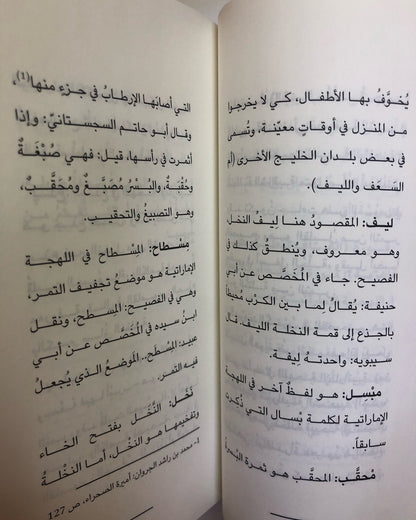 يُخوَّفُ بها الأطفال، كي لا يخرجوا
من المنزل في أوقاتٍ معيّنة، وتُسمى
في بعض بلدان الخليج الأخرى (أم
السّعَف والليف).
ليف: المقصودُ هنا لِيفُ النخل،
وهو معروف، ويُنطقُ كذلك في
الفصيح. جاء في المُخَصَّص عن أبي
حنيفة: يُقالُ لِما بين الكرَب مُحيطاً
بالجذع إلى قمة النخلة الليف. قال
سيبويه: واحدتهُ لِيفة.
مبْسِل: هو لفظٌ آخر في اللهجة
الإماراتية لكلمة بْسال التي ذُكِرَتْ
سابقاً.
مُحقَّب: المحقّب هو ثمرة البُسر
التي أصابَها الإرطابُ في جزءٍ منها(1)،
وقال أبو حاتم السجستانيّ: وإذا
أثمرت في رأسها، قيل: فهي صُبْغَةٌ
وحُقْبَةٌ، والبُسْرُ مُصَبَّغٌ ومُحَقَّبٌ،
وهو التصبيغُ والتحقيب.
مِسْطاح: المِسْطاح في اللهجة
الإماراتية هو موضعُ تجفيف التمر،
وهي في الفصيح: المِسطح، ونقل
ابنُ سيده في المُخَصَّص عن أبي
عبيد: المِسْطح.. الموضعُ الذي يُجعلُ
فيه التمر.
نَخَل: النَّخَل بفتح الخاء
وتفخيمها هو النخْل، أما النخْلةُ
1- محمد بن راشد الجروان: أميرة الصحراء، ص 127